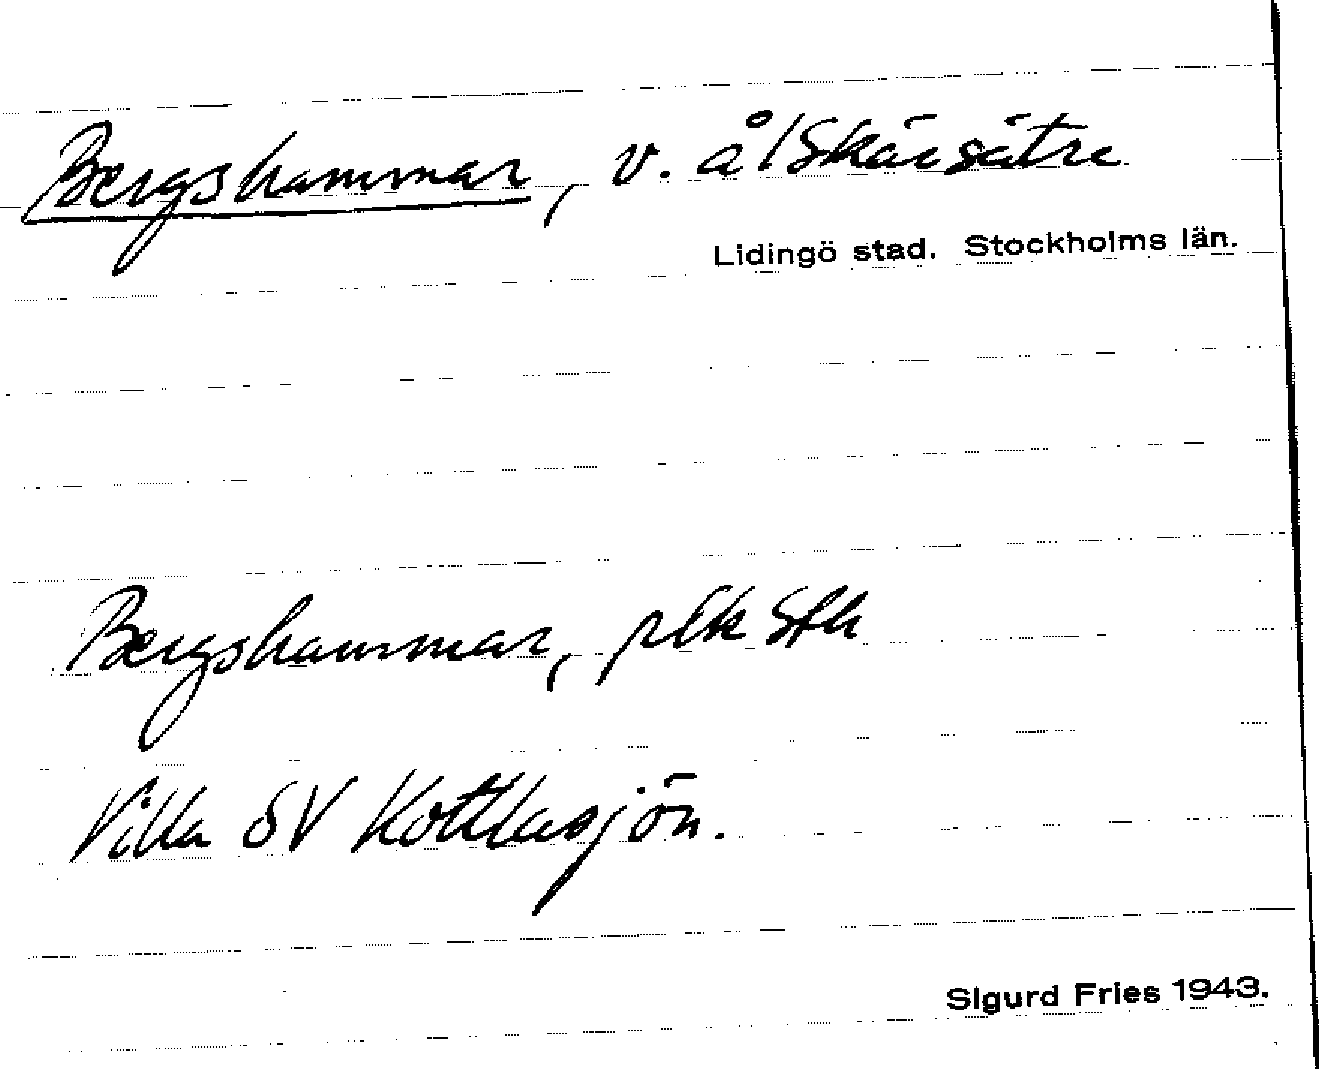 Bergshammar, v. å/Skärsätre
Lidingö stad. Stockholms län.
Bergshammar, plk Sth
Villa SV Kottlasjön.
Sigurd Fries 1943.